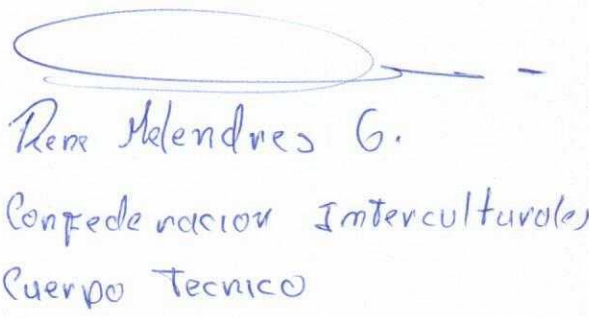 Rene Melendres G.
Confederacion Interculturales
Cuerpo Tecnico